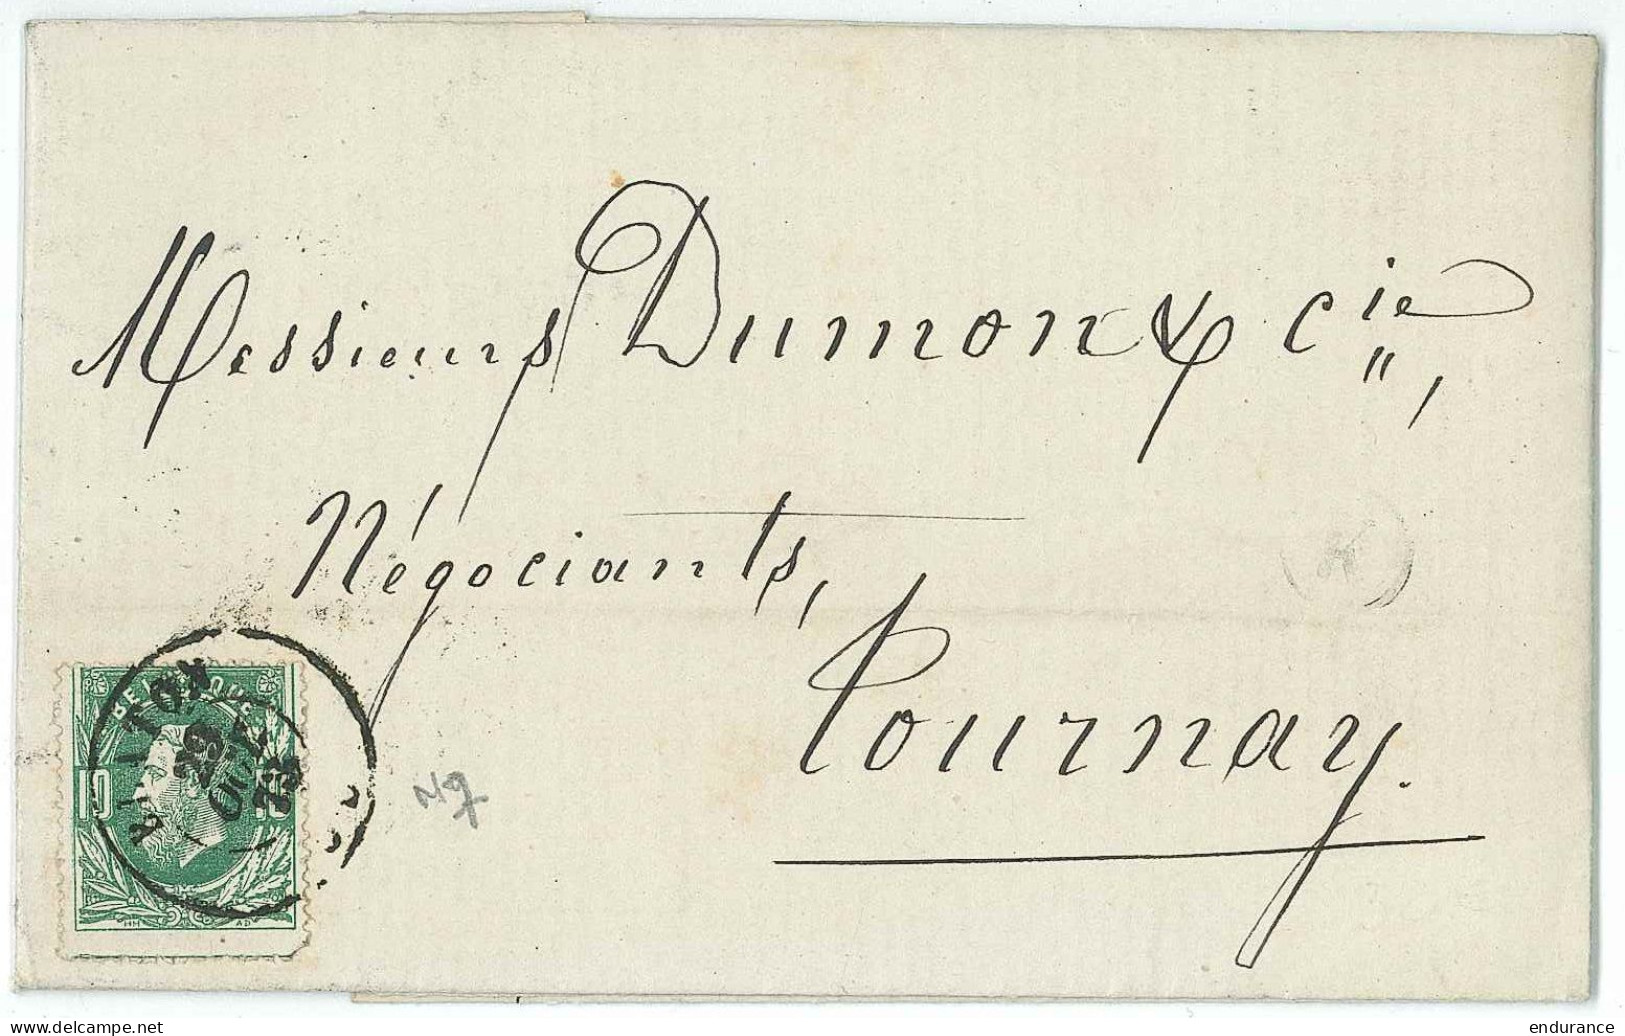 Messieurs Dumon & Cie,
Négociants,
Tournay.
BELGIQUE
10 10
HH AD
28
OCT
73
delcampe.net
endurance